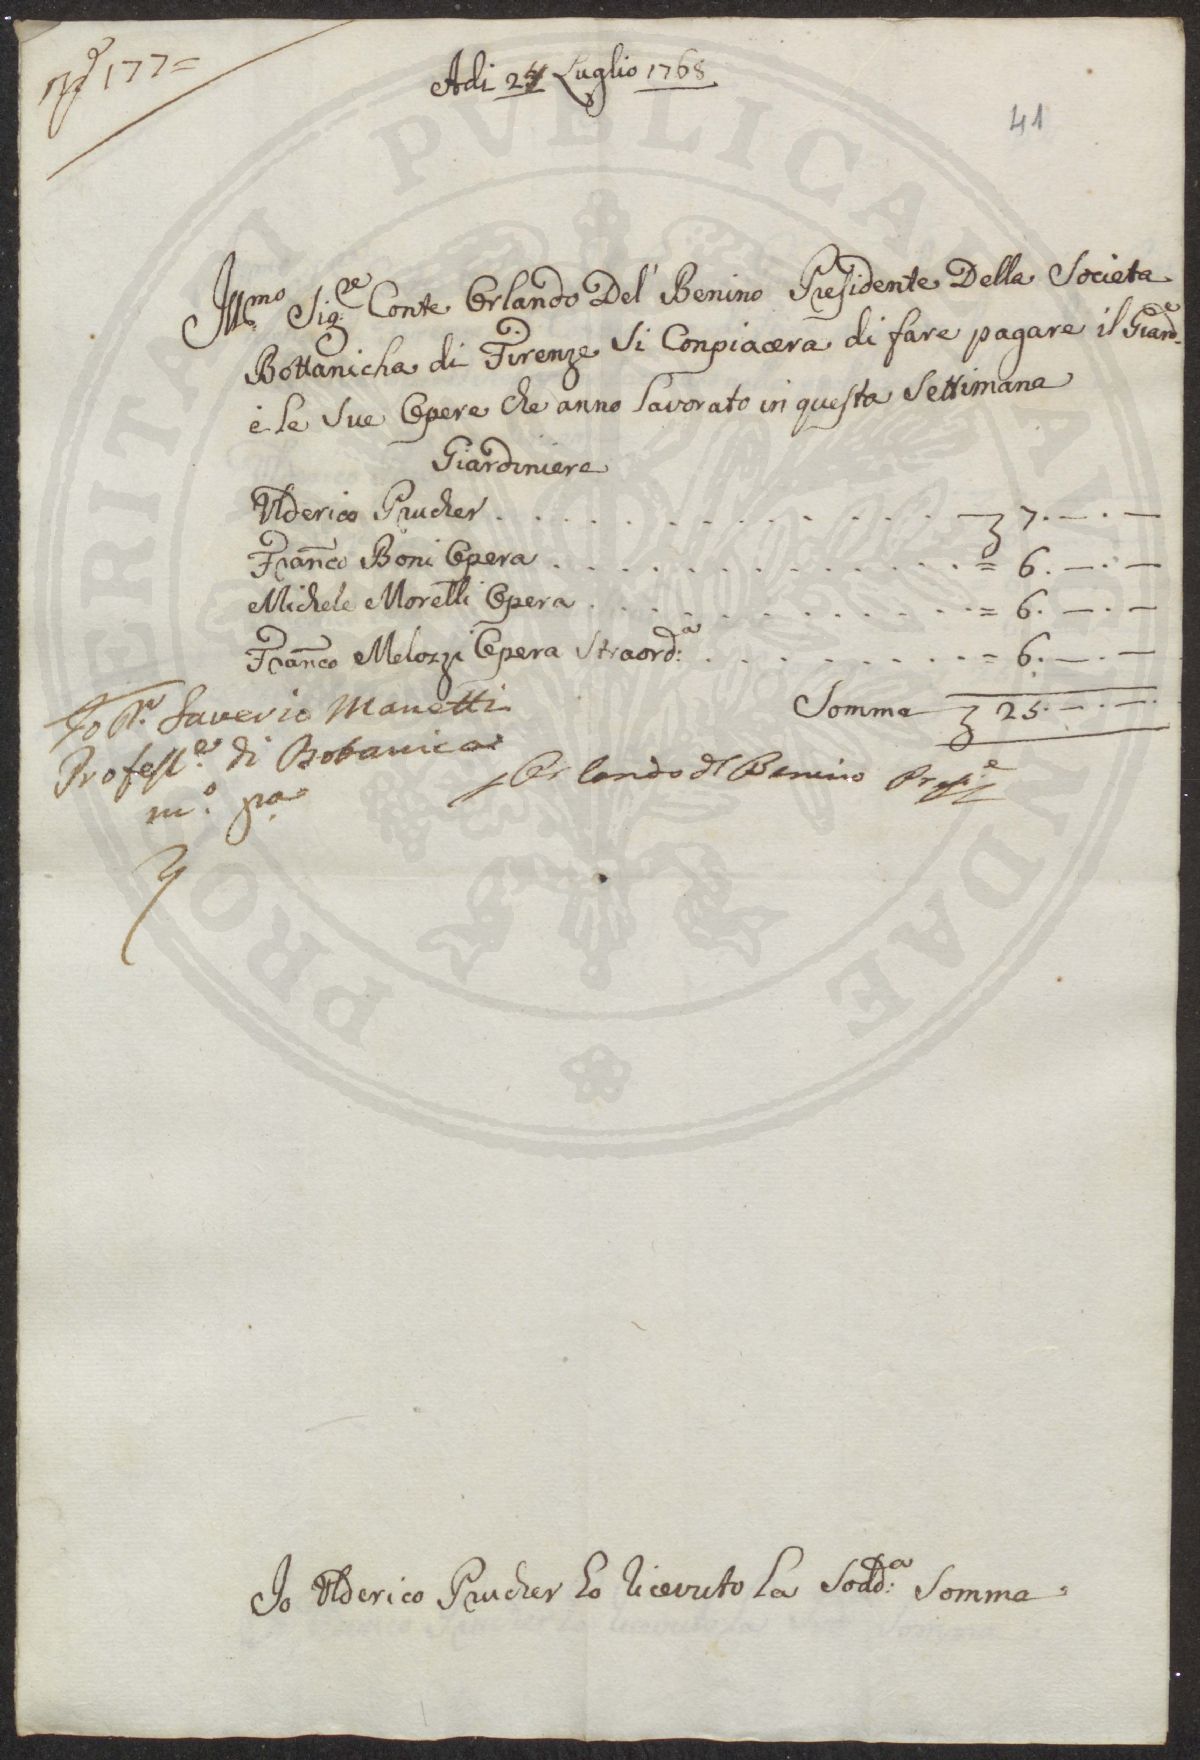 N.º 177=
Adi 24 Luglio 1768
41
Ill:mo Sig:re Conte Orlando Del' Benino Presidente Della Societa
Bottanicha di Firenze Si Conpiacera di fare pagare il Giard:e
e le Sue Opere che anno lavorato in questa Settimana
Giardiniere
Ulderico Prucher . . . . . . . . . . . . . . . . 7. — . —
Franco Boni Opera . . . . . . . . . . . . . . . = 6. — . —
Michele Morelli Opera . . . . . . . . . . . . . = 6. — . —
Franco Melozzi Opera Straord:a . . . . . . . . . = 6. — . —
Somma 25. — . —
Io Saverio Manetti
Profess:e di Botanica
m:o pa
Orlando del Benino Presi:e
Io Ulderico Prucher ho ricevuto la Sodd:a Somma
PUBLICAE PROSPERITATI AVGENDAE